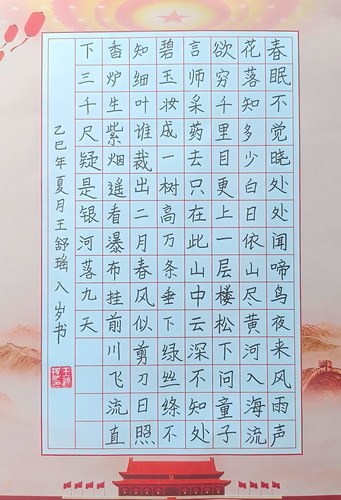 春眠不觉晓处处闻啼鸟夜来风雨声
花落知多少白日依山尽黄河入海流
欲穷千里目更上一层楼松下问童子
言师采药去只在此山中云深不知处
碧玉妆成一树高万条垂下绿丝绦不
知细叶谁裁出二月春风似剪刀日照
香炉生紫烟遥看瀑布挂前川飞流直
下三千尺疑是银河落九天
乙巳年夏月王舒瑶八岁书